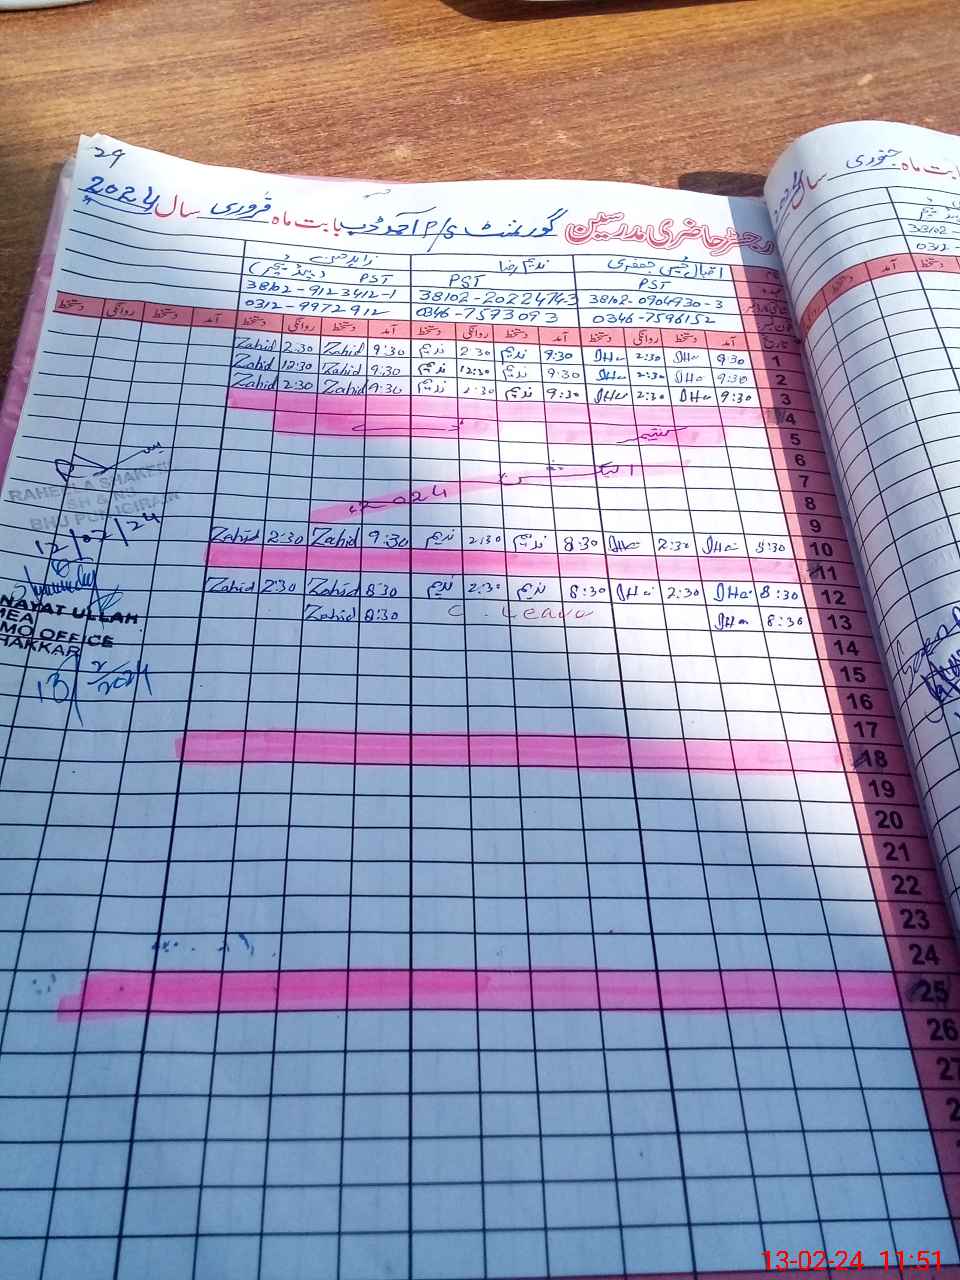 29
رجسٹر حاضری مدرسین گورنمنٹ P/S احمد ڈب بابت ماہ فروری سال 2024
بابت ماہ جنوری سال
اقبال جعفری ندیم رضا زاہد
PST PST PST
38102-0904930-3 38102-2022474-3 38102-9123412-1
0346-7596152 0346-7593093 0312-9972912
تاریخ آمد دستخط روانگی دستخط آمد دستخط روانگی دستخط آمد دستخط روانگی دستخط آمد دستخط روانگی دستخط
1 9:30 2:30 9:30 ندیم 2:30 ندیم 9:30 Zahid 2:30 Zahid
2 9:30 2:30 9:30 ندیم 12:30 ندیم 9:30 Zahid 12:30 Zahid
3 9:30 2:30 9:30 ندیم 2:30 ندیم 9:30 Zahid 2:30 Zahid
4
5
6
7 الیکشن
8 2024
9
10 8:30 2:30 8:30 ندیم 2:30 ندیم 9:30 Zahid 2:30 Zahid
11
12 8:30 2:30 8:30 ندیم 2:30 ندیم 8:30 Zahid 2:30 Zahid
13 8:30 C. Leave 8:30 Zahid
14
15
16
17
18
19
20
21
22
23
24
25
26
27
12/02/24
NAYAT ULLAH
MEA
MO OFFICE
HAKKAR
13/2/2024
13-02-24 11:51